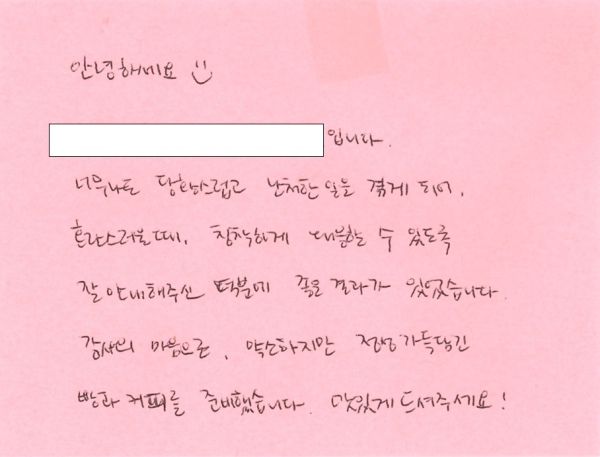 안녕하세요 :)
입니다.
너무나도 당황스럽고 난처한 일을 겪게 되어,
혼란스러울때, 침착하게 대응할 수 있도록
잘 안내해주신 덕분에 좋은 결과가 있었습니다.
감사의 마음으로, 약소하지만 정성가득담긴
빵과 커피를 준비했습니다. 맛있게드셔주세요!